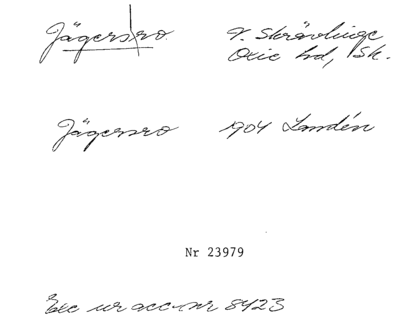 Jägersro V. Skrävlinge
Oxie hd, Sk.
Jägersro 1904 Lundén
Nr 23979
Exc ur acc-nr 8423